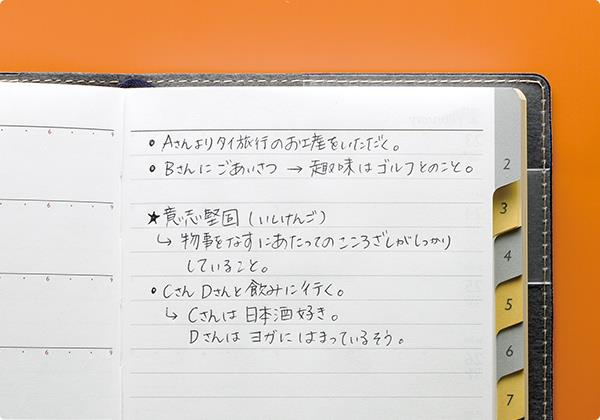 ・Aさんよりタイ旅行のお土産をいただく。
・Bさんに ごあいさつ → 趣味はゴルフとのこと。
★意志堅固(いしけんご)
↳ 物事をなすにあたってのこころざしがしっかり
していること。
・CさんDさんと飲みに行く。
↳ Cさんは日本酒好き。
Dさんは ヨガに はまっているそう。
2
3
4
5
6
7
6 9
6 9
6 9
6 9